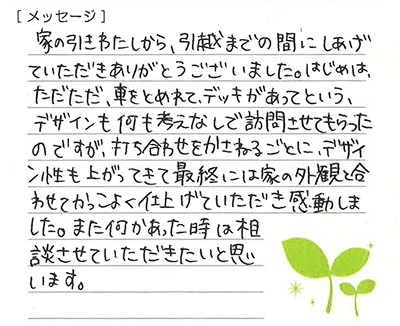 [メッセージ]
家の引きわたしから、引越までの間にしあげ
ていただきありがとうございました。はじめは、
ただただ、車をとめれて、デッキがあってという、
デザインも何も考えなしで訪問させてもらった
のですが、打ち合わせをかさねるごとに、デザイ
ン性も上がってきて最終には家の外観と合
わせてかっこよく仕上げていただき感動しま
した。また何かあった時は相
談させていただきたいと思
います。